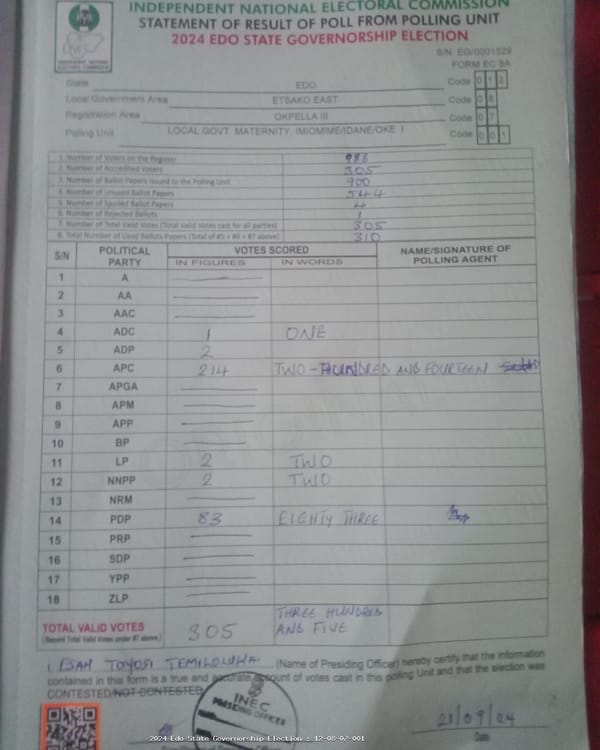 INDEPENDENT NATIONAL ELECTORAL COMMISSION
STATEMENT OF RESULT OF POLL FROM POLLING UNIT
2024 EDO STATE GOVERNORSHIP ELECTION
S/N: EG/0001529
FORM EC 8A
State EDO Code 0 1 2
Local Government Area ETSAKO EAST Code 0 8
Registration Area OKPELLA III Code 0 7
Polling Unit LOCAL GOVT. MATERNITY, IMIOMIME/IDANE/OKE I Code 0 0 1
1. Number of Voters on the Register 988
2. Number of Accredited Voters 305
3. Number of Ballot Papers Issued to the Polling Unit 900
4. Number of Unused Ballot Papers 544
5. Number of Spoiled Ballot Papers 4
6. Number of Rejected Ballots 1
7. Number of Total Valid Votes (Total Valid Votes cast for all parties) 305
8. Total Number of Used Ballots Papers (Total of #5 + #6 + #7 above) 310
S/N POLITICAL PARTY VOTES SCORED NAME/SIGNATURE OF POLLING AGENT
IN FIGURES IN WORDS
1 A
2 AA
3 AAC
4 ADC 1 ONE
5 ADP 2
6 APC 214 TWO-HUNDRED AND FOURTEEN
7 APGA
8 APM
9 APP
10 BP
11 LP 2 TWO
12 NNPP 2 TWO
13 NRM
14 PDP 83 EIGHTY THREE
15 PRP
16 SDP
17 YPP
18 ZLP
TOTAL VALID VOTES 305 THREE HUNDRED AND FIVE
(Record Total Valid Votes under #7 above)
I, ESAH TOYOSI TEMILOLUWA (Name of Presiding Officer) hereby certify that the information
contained in this form is a true and accurate account of votes cast in this polling Unit and that the election was
CONTESTED/NOT CONTESTED
INEC
PRESIDING OFFICER
21/09/24
Date
2024 Edo State Governorship Election : 12-08-07-001